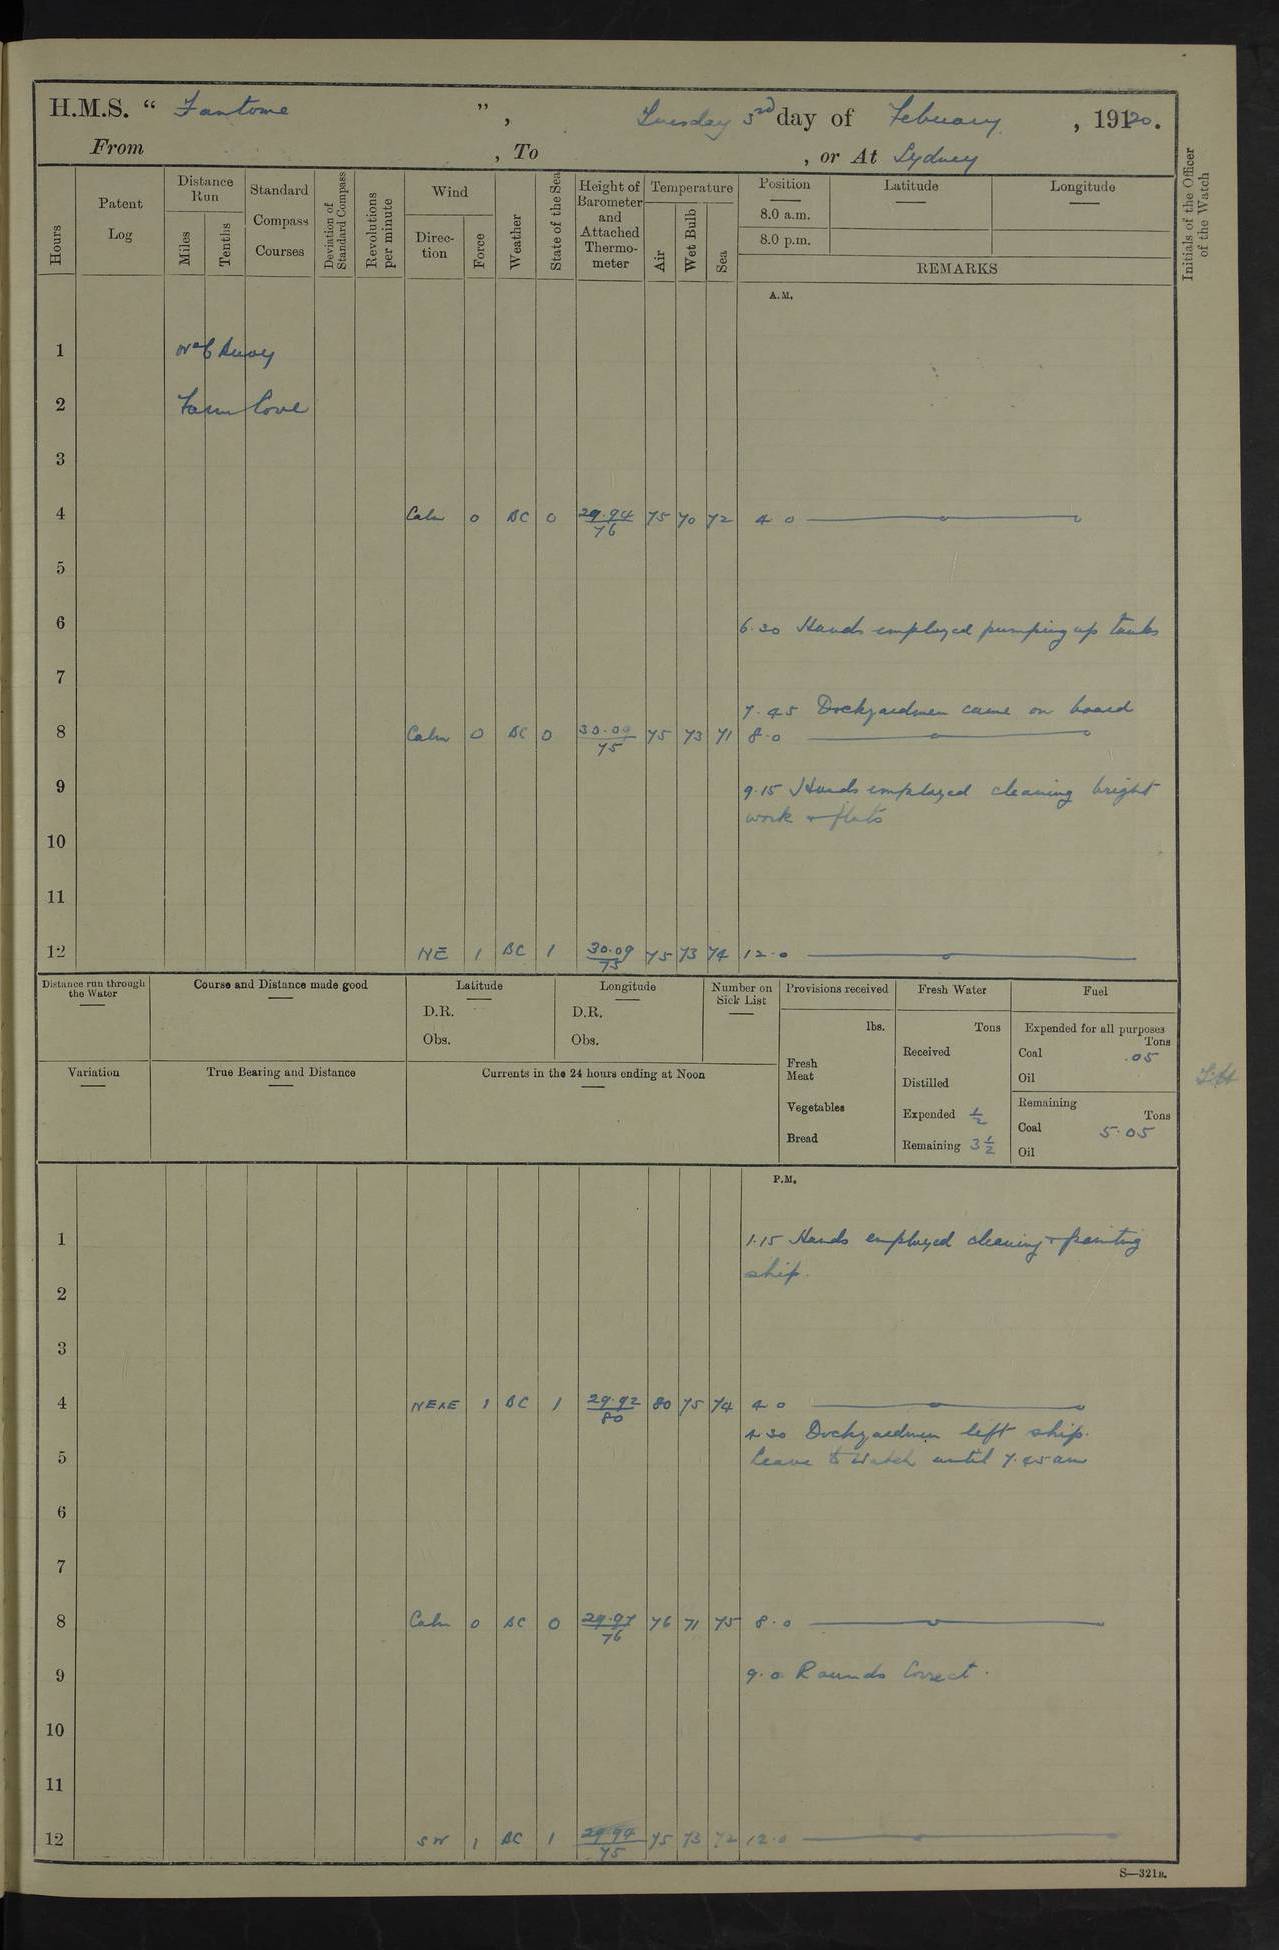 H.M.S. " Fantome ", Tuesday 3rd day of Febuary, 19120.
From , To , or At Sydney
Hours
Patent Log
Distance Run
Miles
Tenths
Standard Compass Courses
Deviation of Standard Compass
Revolutions per minute
Wind
Direction
Force
Weather
State of the Sea
Height of Barometer and Attached Thermometer
Temperature
Air
Wet Bulb
Sea
Position
8.0 a.m.
8.0 p.m.
Latitude
Longitude
REMARKS
Initials of the Officer of the Watch
A.M.
1 No 6 Buoy
2 Farm Cove
3
4 Calm 0 BC 0 29.94/76 75 70 72 4 0
5
6
6.30 Hands employed pumping up tanks
7
7.45 Dockyardmen came on board
8 Calm 0 BC 0 30.09/75 75 73 71 8.0
9 9.15 Hands employed cleaning bright
work + flats
10
11
12 NE 1 BC 1 30.09/75 75 73 74 12.0
Distance run through the Water
Course and Distance made good
Latitude
D.R.
Obs.
Longitude
D.R.
Obs.
Number on Sick List
Provisions received
lbs.
Fresh Meat
Vegetables
Bread
Fresh Water
Tons
Received
Distilled
Expended 1/2
Remaining 3 1/2
Fuel
Expended for all purposes
Tons
Coal .05
Oil
Remaining
Tons
Coal 5.05
Oil
Variation
True Bearing and Distance
Currents in the 24 hours ending at Noon
P.M.
1 1.15 Hands employed cleaning + painting
ship.
2
3
4 NExE 1 BC 1 29.92/80 80 75 74 4 0
4 30 Dockyardmen left ship.
5 Leave to Watch until 7.45 am
6
7
8 Calm 0 BC 0 29.97/76 76 71 75 8.0
9 9.0 Rounds Correct.
10
11
12 SW 1 BC 1 29.94/75 75 73 72 12.0
S—321B.